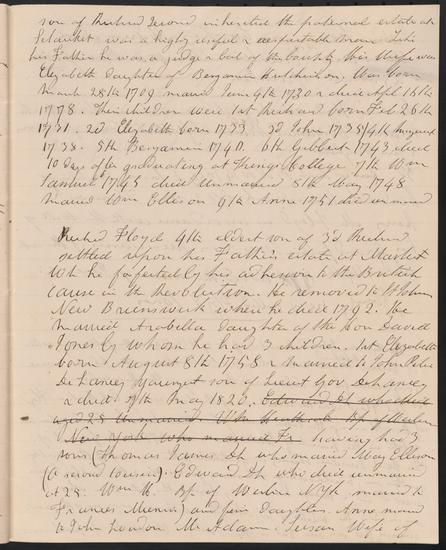 son of Richard Second inherited the paternal estate at
Setauket was a highly useful & respectable man like
his Father he was a judge & Col of the County His Wife was
Elizabeth daughter of Benjamin Hutchinson. Was born
March 28th 1709 married June 4th 1730 & died Apl 16th
1778. Their children were 1st Richard born Feb 26th
1731. 2d Elizabeth born 1733 3d John 1735 4th
1738. 5th Benjamin 1740. 6th Gilbert 1743 died
10 days after graduating at Kings College 7th Wm
Samuel 1745 died Unmarried 8th Mary 1748
married Wm Ellison 9th Anne 1751 died unmarried
Richd Floyd 4th eldest son of 3d Richard
settled upon his Fathers estate at Mastic
Wh he forfeited by his adhesion to the British
cause in the Revolution. He removed to St Johns
New Brunswick where he died 1792. He
married Arabella daughter of the Hon David
Jones by Whom he had 3 children. 1st Elizabeth
born August 8th 1758 & married to John Peter
De Lancey youngest son of Lieut Gov DeLancey
& died 7th May 1820. Edward Dl who died
aged 28 Unmarried Wm Heathcote Bp of Western
New York who married Fr having had 3
sons (Thomas James Dl who married Mary Ellison
(a second cousin). Edward Dl who died unmarried
at 25. Wm H. Bp of Western N.Yk married to
Frances Munro) and five daughters. Anne married
to John Loudon McAdam. Susan Wife of